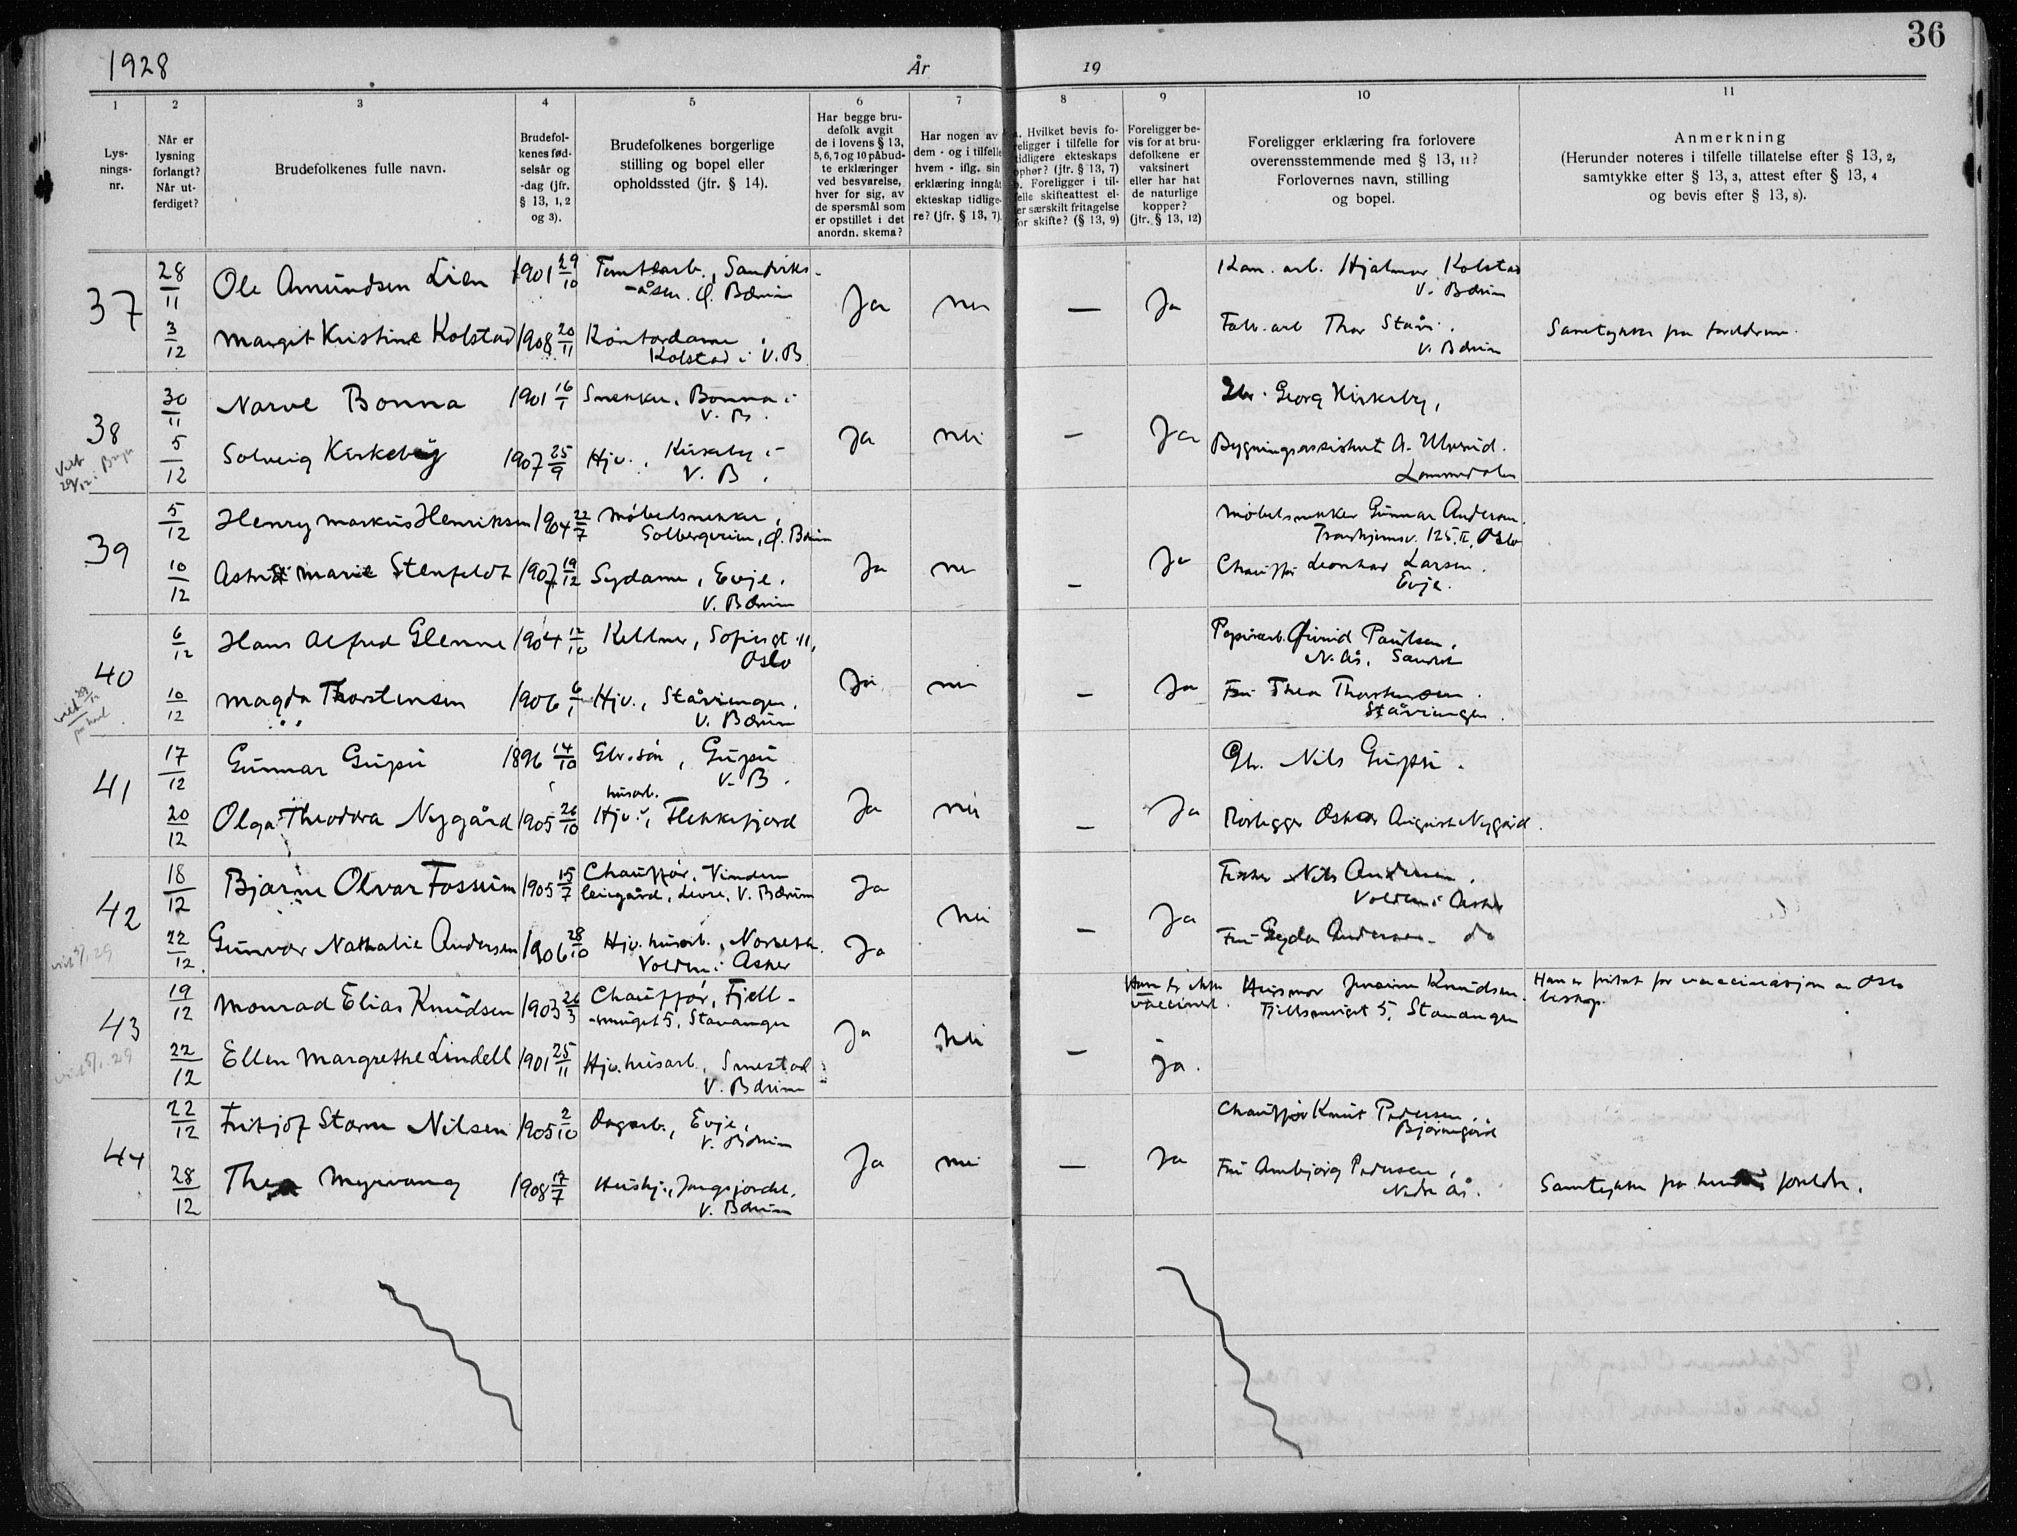 36
1928
År
19
1
2
3
4
5
6
7
8
9
10
11
Lys-
nings-
nr.
Når er
lysning
forlangt?
Når ut-
ferdiget?
Brudefolkenes fulle navn.
Brudefol-
kenes fød-
selsår og
-dag (jfr.
§ 13, 1, 2
og 3).
Brudefolkenes borgerlige
stilling og bopel eller
opholdssted (jfr. § 14).
Har begge bru-
defolk avgit
de i lovens § 13,
5, 6, 7 og 10 påbud-
te erklæringer
ved besvarelse,
hver for sig, av
de spørsmål som
er opstillet i det
anordn. skema?
Har nogen av
dem - og i tilfelle
hvem - iflg. sin
erklæring inngåt
ekteskap tidlige-
re? (jfr. § 13, 7).
Hvilket bevis fo-
religger i tilfelle for
tidligere ekteskaps
ophør? (jfr. § 13, 7)
b. Foreligger i til-
felle skifteattest el-
ler særskilt fritagelse
for skifte? (§ 13, 9)
Foreligger be-
vis for at bru-
defolkene er
vaksinert
eller har hat
de naturlige
kopper?
(jfr. § 13, 12)
Foreligger erklæring fra forlovere
overensstemmende med § 13, 11?
Forlovernes navn, stilling
og bopel.
Anmerkning
(Herunder noteres i tilfelle tillatelse efter § 13, 2,
samtykke efter § 13, 3, attest efter § 13, 4
og bevis efter § 13, 8).
37
28/11
Ole Amundsen Lien
1901 29/10
Tomtearb., Sandviks-
-åsen. Ø. Bærum
Ja
nei
—
Ja
Kom. arb. Hjalmar Kolstad
V. Bærum
3/12
Margit Kristine Kolstad
1908 20/11
Kontordame
Kolstad i V. B
Fabr. arb Thor
V. Bærum
Samtykke fra foreldrene.
38
30/11
Narve Bonna
1901 16/1
Snekker, Bonna i
V. B.
Ja
nei
—
Ja
Gbr. Georg Kirkeby,
5/12
Solveig Kirkeby
1907 25/9
Hjv., Kirkeby i
V. B.
Bygningsassistent A. Ulverud.
Lommedalen
39
5/12
Henry Markus Henriksen
1904 22/7
Møbelsnekker,
Solbergveien, Ø. Bærum
Ja
nei
—
Ja
Møbelsnekker Gunnar Andersen.
Trondhjemsv. 125 II, Oslo
10/12
Astrid Marie Stenfeldt
1907 19/12
Sydame, Evje.
V. Bærum
Chauffør Leonhar Larsen.
Evje.
40
6/12
Hans Alfred Glenne
1904 12/10
Kellner, Sofiesgt 11,
Oslo
Ja
nei
—
Ja
Papirarb. Øivind Paulsen,
N. Ås, Sandvik
10/12
Magda Thorstensen
1906 6/1
Hjv., Ståvivengen.
V. Bærum
Fru Thea Thorstensen.
Ståvivengen.
41
17/12
Gunnar Gupu
1896 14/10
Gbr. søn, Gupu
V. B.
Ja
nei
—
Ja
Gbr. Nils Gupu.
20/12
Olga Theodora Nygård
1905 26/10
husarb.
Hjv., Flekkefjord
Rørlegger Oskar August Nygård.
42
18/12
Bjarne Olvar Fossum
1905 15/7
Chauffør, Vindern
leiegård, Levre, V. Bærum
Ja
nei
—
Ja
Fisker Nils Andersen.
Volden i Asker
22/12
Gunvor Nathalie Andersen
1906 28/10
Hjv. husarb.,
Volden i Asker
Ja
Fru Gyda Andersen - do
43
19/12
Monrad Elias Knudsen
1903 26/3
Chauffør, Fjell-
-smuget 5, Stavanger
Ja
Nei
—
Han er ikke
vaccinert.
Husmor Knudsen.
Fjellsmuget 5, Stavanger
Han er fritat for vaccinasjon av Oslo
biskop.
22/12
Ellen Margrethe Lindell
1901 25/11
Hjv. husarb., Smestad
V. Bærum
Ja.
44
22/12
Fritjof Storm Nilsen
1905 2/10
Dagarb., Evje,
V. Bærum
Ja
nei
—
Ja
Chauffør Knut Pedersen,
Bjørnegård
28/12
Thea Myrvang
1908 17/7
Hushj., Jongsjordet.
V. Bærum
Fru Annbjørg Pedersen,
Nedre Ås.
Samtykke fra hennes foreldre.